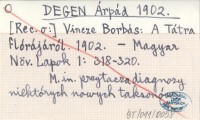 DEGEN Árpád 1902.
[Rec. o:] Vincze Borbás: A Tátra
Flórájáról. 1902. - Magyar
Növ. Lapok 1: 318-320.
M. in. przytacza diagnozy
niektórych nowych taksonów.